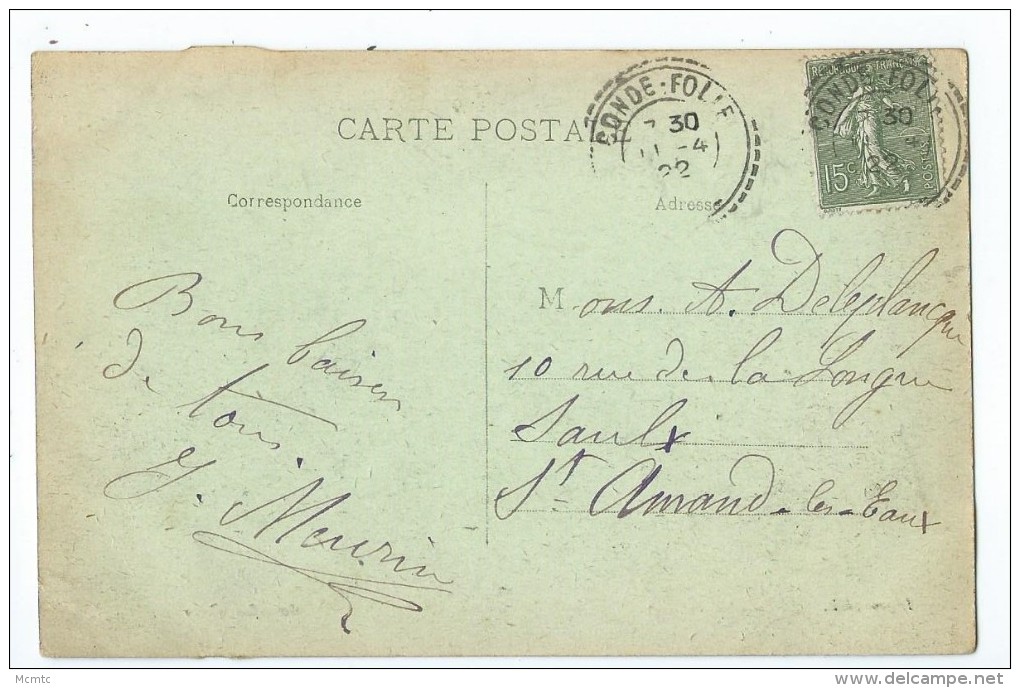 CARTE POSTA
CONDE-FOLIE
7 30
11 -4
22
REPUBLIQUE FRANÇAISE
CONDE-FOLIE
30
22
15c
POSTES
Correspondance
Adresse
Bons baisers
de tous.
Mons. A. Deleplanque
10 rue de la Longue
Saulx
St Amand-les-Eaux
Mcmtc
delcampe.net